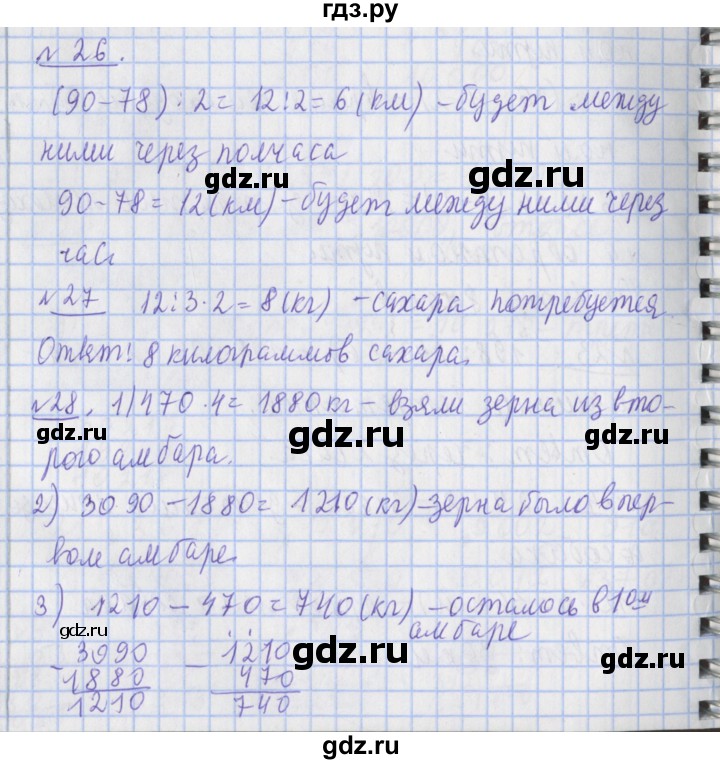 гдз.ру
№ 26.
(90-78) : 2 = 12:2 = 6 (км) - будет между
ними через полчаса
gdz.ru
90-78 = 12(км) - будет между ними через
час
gdz.ru
№27 12:3·2 = 8(кг) - сахара потребуется
Ответ: 8 килограммов сахара.
№28. 1) 470·4 = 1880 кг - взяли зерна из вто-
gdz.ru
рого амбара.
gdz.ru
2) 3090-1880 = 1210 (кг)-зерна было в пер-
вом амбаре.
3) 1210-470 = 740(кг) - осталось в 1ом
амбаре
gdz.ru
gdz.ru
- 3090 - 1210
1880 470
1210 740
gdz.ru